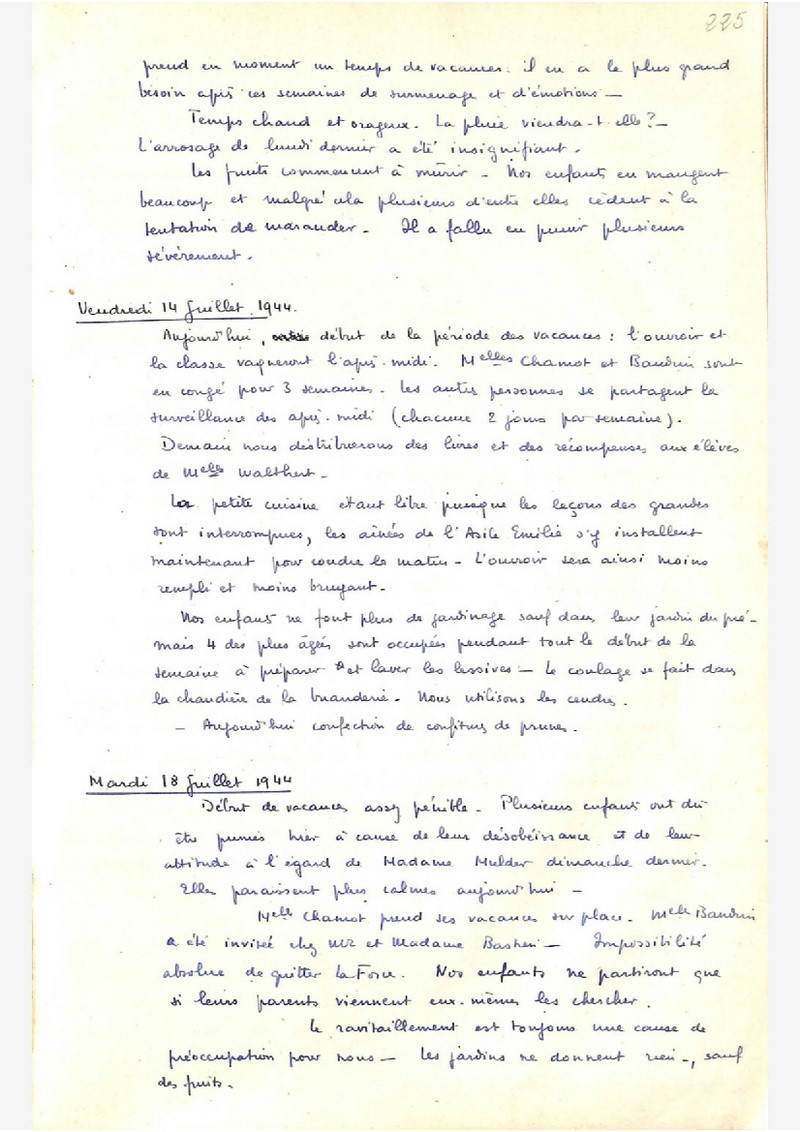 225
prend en moment un temps de vacances. il en a le plus grand
besoin après ces semaines de surmenage et d'émotions —
Temps chaud et orageux. La pluie viendra-t-elle ? —
L'arrosage de lundi dernier a été insignifiant.
Les fruits commencent à mûrir - Nos enfants en mangent
beaucoup et malgré cela plusieurs d'entre elles cèdent à la
tentation de marauder. Il a fallu en punir plusieurs
sévèrement.
Vendredi 14 Juillet 1944.
Aujourd'hui, début de la période des vacances : l'ouvroir et
la classe vaqueront l'après-midi. Melles Chamot et Baudrin sont
en congé pour 3 semaines - les autres personnes se partagent la
surveillance des après-midi (chacune 2 jours par semaine).
Demain nous distribuerons des livres et des récompenses aux élèves
de Melle Walthert -
La petite cuisine étant libre puisque les leçons des grandes
sont interrompues, les aînées de l'Asile Emilie s'y installent
maintenant pour coudre le matin - L'ouvroir sera ainsi moins
rempli et moins bruyant -
Nos enfants ne font plus de jardinage sauf dans leur jardin du pré -
mais 4 des plus âgées sont occupées pendant tout le début de la
semaine à préparer et laver les lessives — Le coulage se fait dans
la chaudière de la buanderie - Nous utilisons les cendres.
- Aujourd'hui confection de confitures de prunes.
Mardi 18 Juillet 1944
Début de vacances assez pénible - Plusieurs enfants ont dû
être punies hier à cause de leur désobéissance et de leur
attitude à l'égard de Madame Mulder dimanche dernier.
Elles paraissent plus calmes aujourd'hui -
Melle Chamot prend ses vacances sur place - Melle Baudrin
a été invitée chez Mr et Madame — Impossibilité
absolue de quitter La Force. Nos enfants ne partiront que
si leurs parents viennent eux-mêmes les chercher.
Le ravitaillement est toujours une cause de
préoccupation pour nous — Les jardins ne donnent rien -, sauf
des fruits -